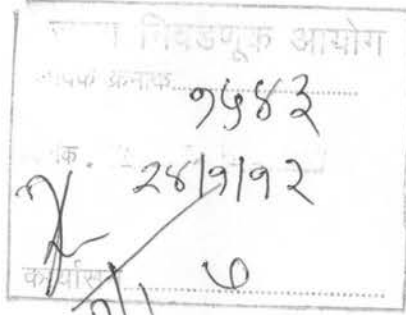 राज्य निवडणूक आयोग
आवक क्रमांक १५४३
२४|१|१२
कार्यासन ७